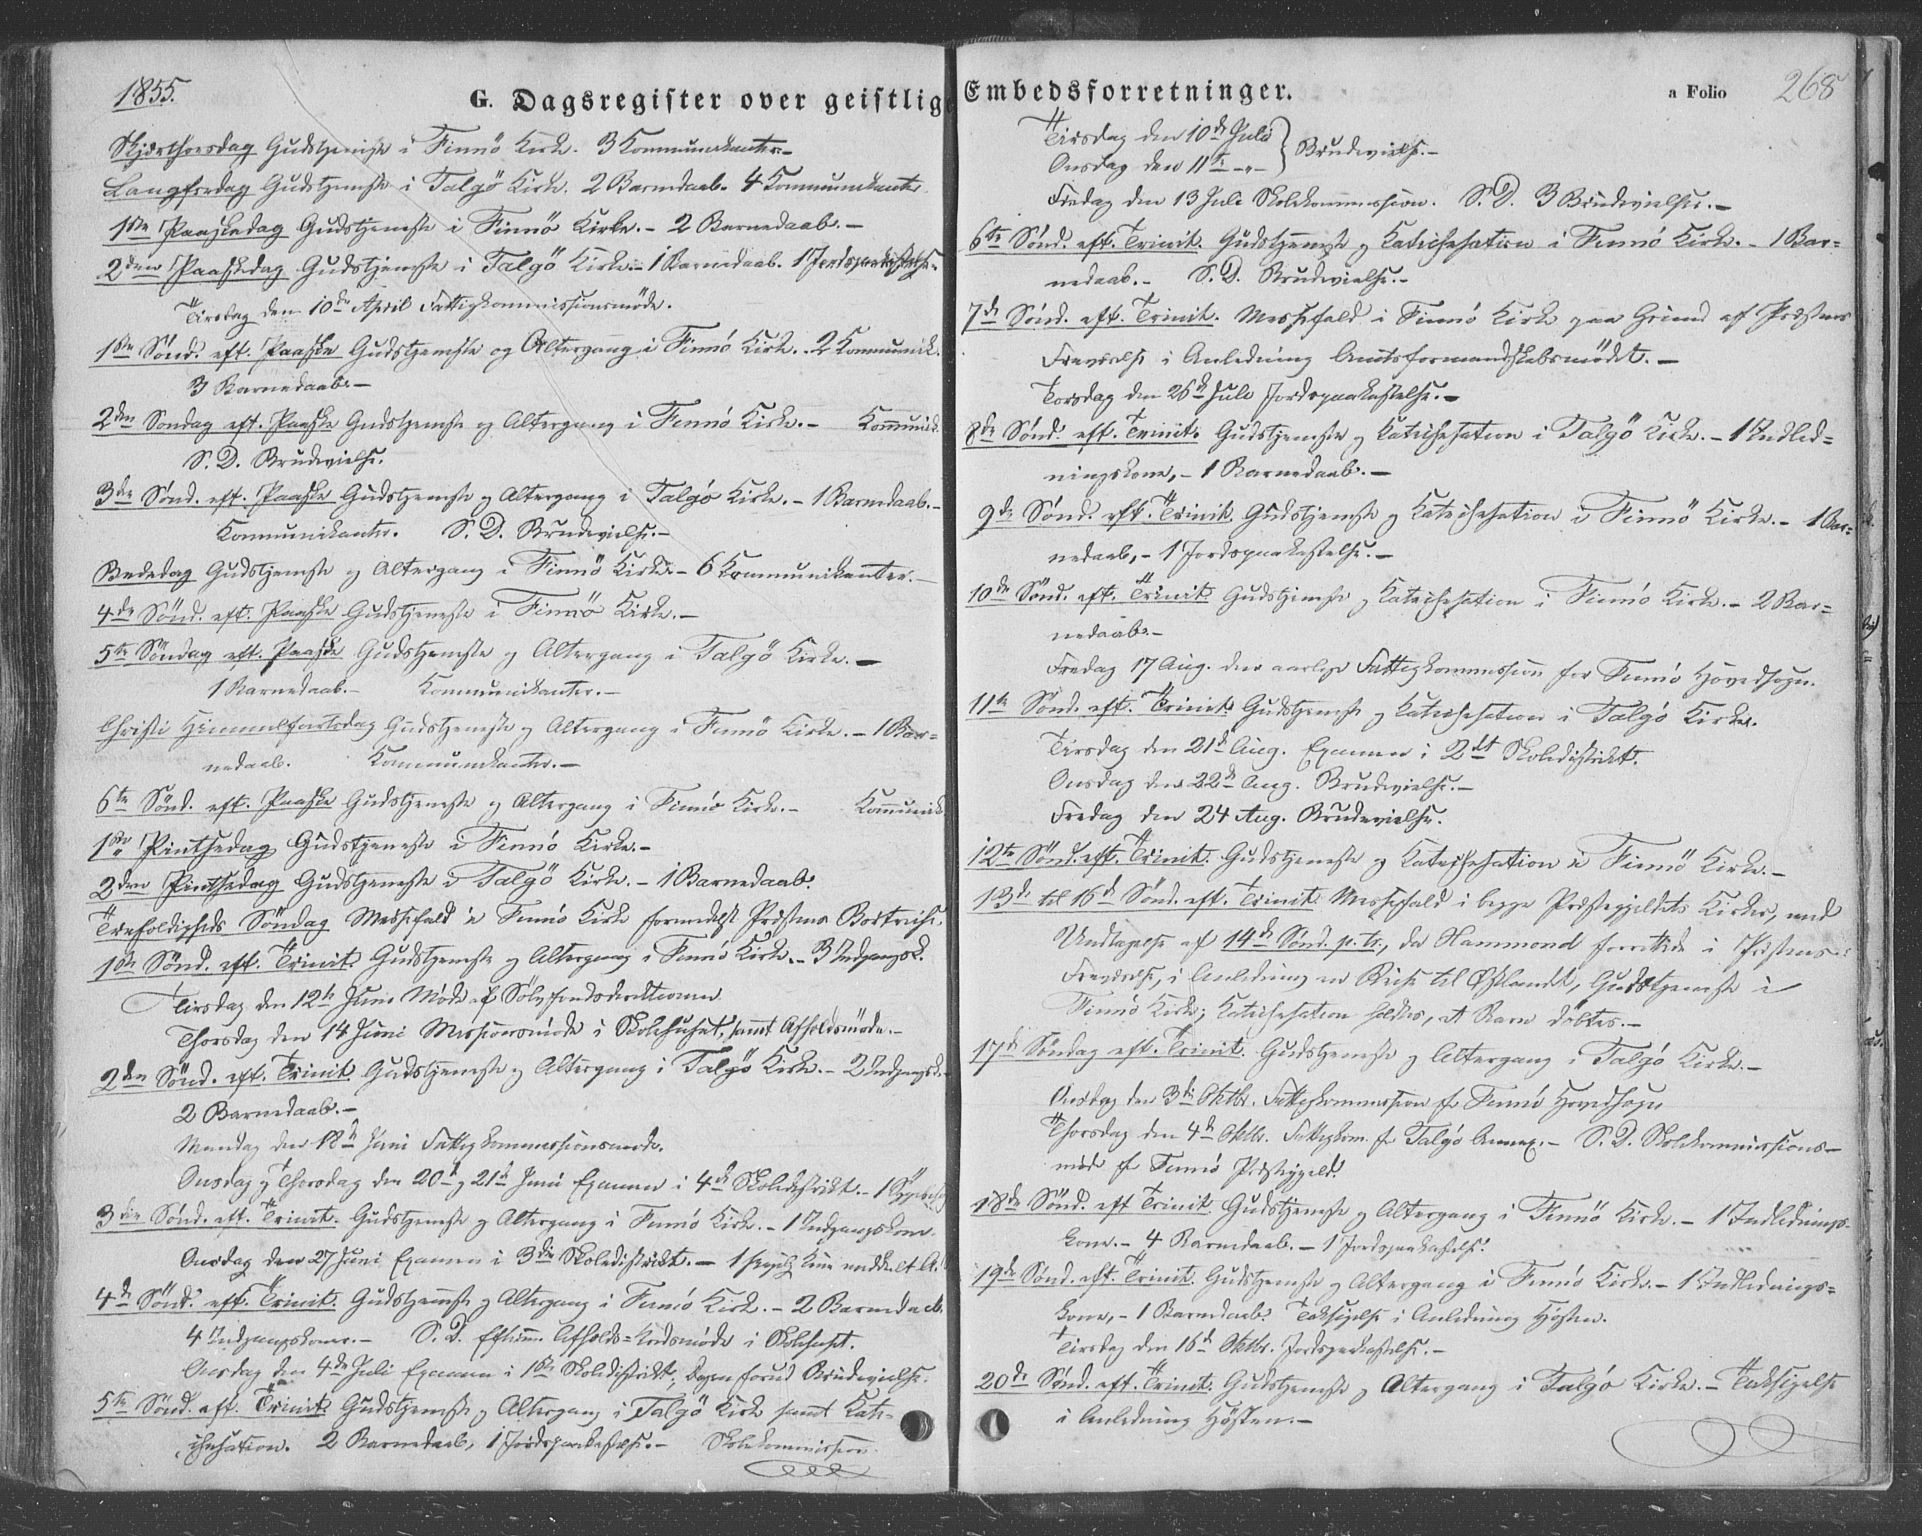 1855.
G. Dagsregister over geistlige Embedsforretninger.
a Folio 268
Skjærthorsdag Gudstjeneste i Finnö Kirke. 3 Kommunikanter.-
Langfredag Gudstjeneste i Talgö Kirke. 2 Barnedaab. 4 Kommunikanter.
1ste Paaskedag Gudstjeneste i Finnö Kirke.- 2 Barnedaab.-
2den Paaskedag Gudstjeneste i Talgö Kirke.- 1 Barnedaab. 1 Jordspaakastelse.
Tirsdag den 10de April Fattigkommissionsmöde.
1ste Sönd. eft. Paaske Gudstjeneste og Altergang i Finnö Kirke. 2 Kommunik.
3 Barnedaab.-
2den Söndag eft. Paaske Gudstjeneste og Altergang i Finnö Kirke.- Kommunik.
S. D. Brudevielse.
3die Sönd. eft. Paaske Gudstjeneste og Altergang i Talgö Kirke.- 1 Barnedaab.-
Kommunikanter. S. D. Brudevielse.-
Bededag Gudstjeneste og Altergang i Finnö Kirke- 6 Kommunikanter.-
4de Sönd. eft. Paaske Gudstjeneste i Finnö Kirke.-
5te Söndag eft. Paaske Gudstjeneste og Altergang i Talgö Kirke.-
1 Barnedaab.- Kommunikanter.-
Christi Himmelfartsdag Gudstjeneste og Altergang i Finnö Kirke.- 1 Bar=
nedaab. Kommunikanter.-
6te Sönd. eft. Paaske Gudstjeneste og Altergang i Finnö Kirke.- Kommunik
1ste Pintsedag Gudstjeneste i Finnö Kirke.-
2den Pintsedag Gudstjeneste i Talgö Kirke.- 1 Barnedaab.
Trefoldigheds Söndag Messefald i Finnö Kirke formedelst Præstens Bortreise.
1ste Sönd. eft. Trinit. Gudstjeneste og Altergang i Finnö Kirke.- 3 Indgangsk.
Tirsdag den 12te Juni Möde af
Thorsdag den 14 Juni Missionsmöde i Skolehuset, samt Afholdsmöde.-
2den Sönd. eft. Trinit. Gudstjeneste og Altergang i Talgö Kirke.- 2 Indgangsk.-
2 Barnedaab.-
Mandag den 18de Juni Fattigkommissionsmöde.
Onsdag og Thorsdag den 20de og 21de Juni Examen i 4de Skoledistrikt.- 1
3die Sönd. eft. Trinit. Gudstjeneste og Altergang i Finnö Kirke.- 1 Indgangskone.
Onsdag den 27 Juni Examen i 3die Skoledistrikt.- 1 meddelt A.
4de Sönd. eft. Trinit. Gudstjeneste og Altergang i Finnö Kirke.- 2 Barnedaab.
4 Indgangskoner.- S. D. Afholds= möde i Skolehuset.
Onsdag den 4de Juli Examen i 1ste Skoledistrikt; Dagen forud Brudevielse.
5te Sönd. eft. Trinit. Gudstjeneste og Altergang i Talgö Kirke samt Kate-
chesation. 2 Barnedaab, 1 Jordspaakastelse.- Skolekommission.
Tirsdag den 10de Juli
Onsdag den 11te -„- } Brudevielse.-
Fredag den 13 Juli Skolekommission. S. D. 3 Brudevielser.-
6te Sönd. eft. Trinit. Gudstjeneste og Katechesation i Finnö Kirke.- 1 Bar=
nedaab.- S. D. Brudevielse.-
7de Sönd. eft. Trinit. Messefald i Finnö Kirke paa Grund af Præstens
Fraværelse i Anledning Amtsformandskabsmödet.-
Torsdag den 26de Juli Jordspaakastelse.-
8de Sönd. eft. Trinit. Gudstjeneste og Katechesation i Talgö Kirke.- 1 Indled=
ningskone,- 1 Barnedaab.-
9de Sönd. eft. Trinit. Gudstjeneste og Katechesation i Finnö Kirke.- 1 Bar=
nedaab,- 1 Jordspaakastelse.-
10de Sönd. eft. Trinit. Gudstjeneste og Katechesation i Finnö Kirke.- 2 Bar=
nedaab.-
Fredag 17 Aug. den aarlige Fattigkommission for Finnö Hovedsogn.
11te Sönd. eft. Trinit. Gudstjeneste og Katechesation i Talgö Kirke.
Tirsdag den 21de Aug. Examen i 2det Skoledistrikt.
Onsdag den 22de Aug. Brudevielse.-
Fredag den 24 Aug. Brudevielse.
12te Sönd. eft. Trinit. Gudstjeneste og Katechesation i Finnö Kirke.-
13de til 16de Sönd. eft. Trinit. Messefald i begge Præstegjeldets Kirker, med
Undtagelse af 14de Sönd. p. tr., da Hammond forrettede i Præstens
Fraværelse, i Anledning en Reise til Østlandet, Gudstjeneste i
Finnö Kirke; Katechesation holdtes, et Barn döbtes.-
17de Söndag eft. Trinit. Gudstjeneste og Altergang i Talgö Kirke.-
Onsdag den 3die Oktbr. Fattigkommission for Finnö Hovedsogn
Thorsdag den 4de Oktbr. Fattigkom. for Talgö Annex.- S. D. Skolekommissions-
möde for Finnö Præstegjeld.
18de Sönd. eft Trinit. Gudstjeneste og Altergang i Finnö Kirke.- 1 Indlednings-
kone.- 4 Barnedaab.- 1 Jordspaakastelse.
19de Sönd. eft. Trinit. Gudstjeneste og Altergang i Finnö Kirke.- 1 Indlednings=
kone,- 1 Barnedaab. Taksigelse i Anledning Hösten.
Tirsdag den 16de Oktbr. Jordspaakastelse.-
20de Sönd. eft. Trinit. Gudstjeneste og Altergang i Talgö Kirke.- Taksigelse
i Anledning Hösten.-